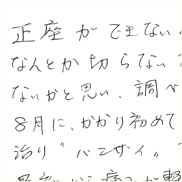 正座ができない
なんとか切らない
ないかと思い、調べ
8月に、かかり初めて
治り〝バンザイ〟